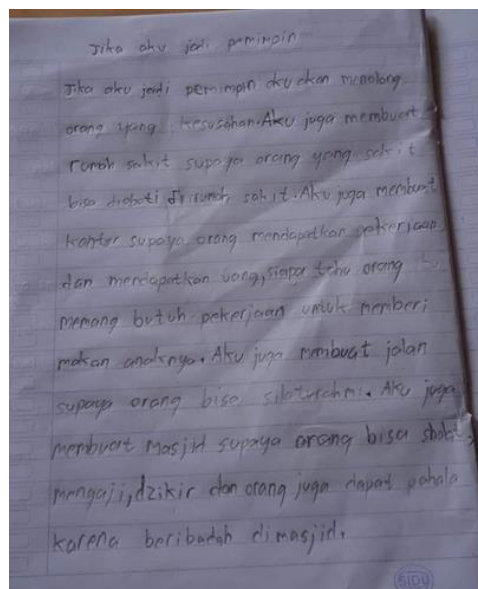 Jika aku jadi pemimpin
Jika aku jadi pemimpin aku akan menolong
orang yang kesusahan. Aku juga membuat
rumah sakit supaya orang yang sakit
bisa diobati di rumah sakit. Aku juga membuat
kantor supaya orang mendapatkan pekerjaan
dan mendapatkan uang, siapa tahu orang
memang butuh pekerjaan untuk memberi
makan anaknya. Aku juga membuat jalan
supaya orang bisa silaturahmi. Aku juga
membuat masjid supaya orang bisa sholat,
mengaji, dzikir dan orang juga dapat pahala
karena beribadah dimasjid.
SIDU